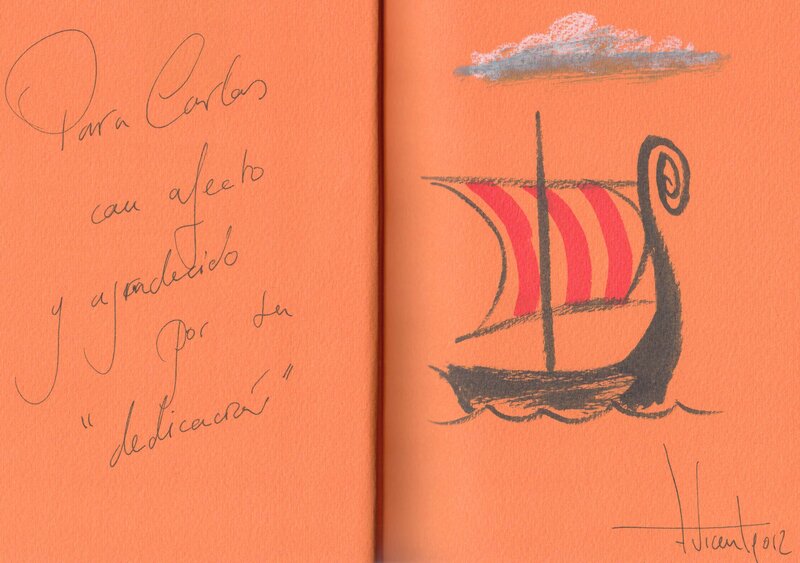 Para Carlos
con afecto
y agradecido
por su
"dedicación"
Vicente 2012